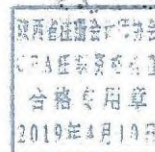 陕西省注册会计师协会
CPA任职资格检查
合格专用章
2019年4月19日